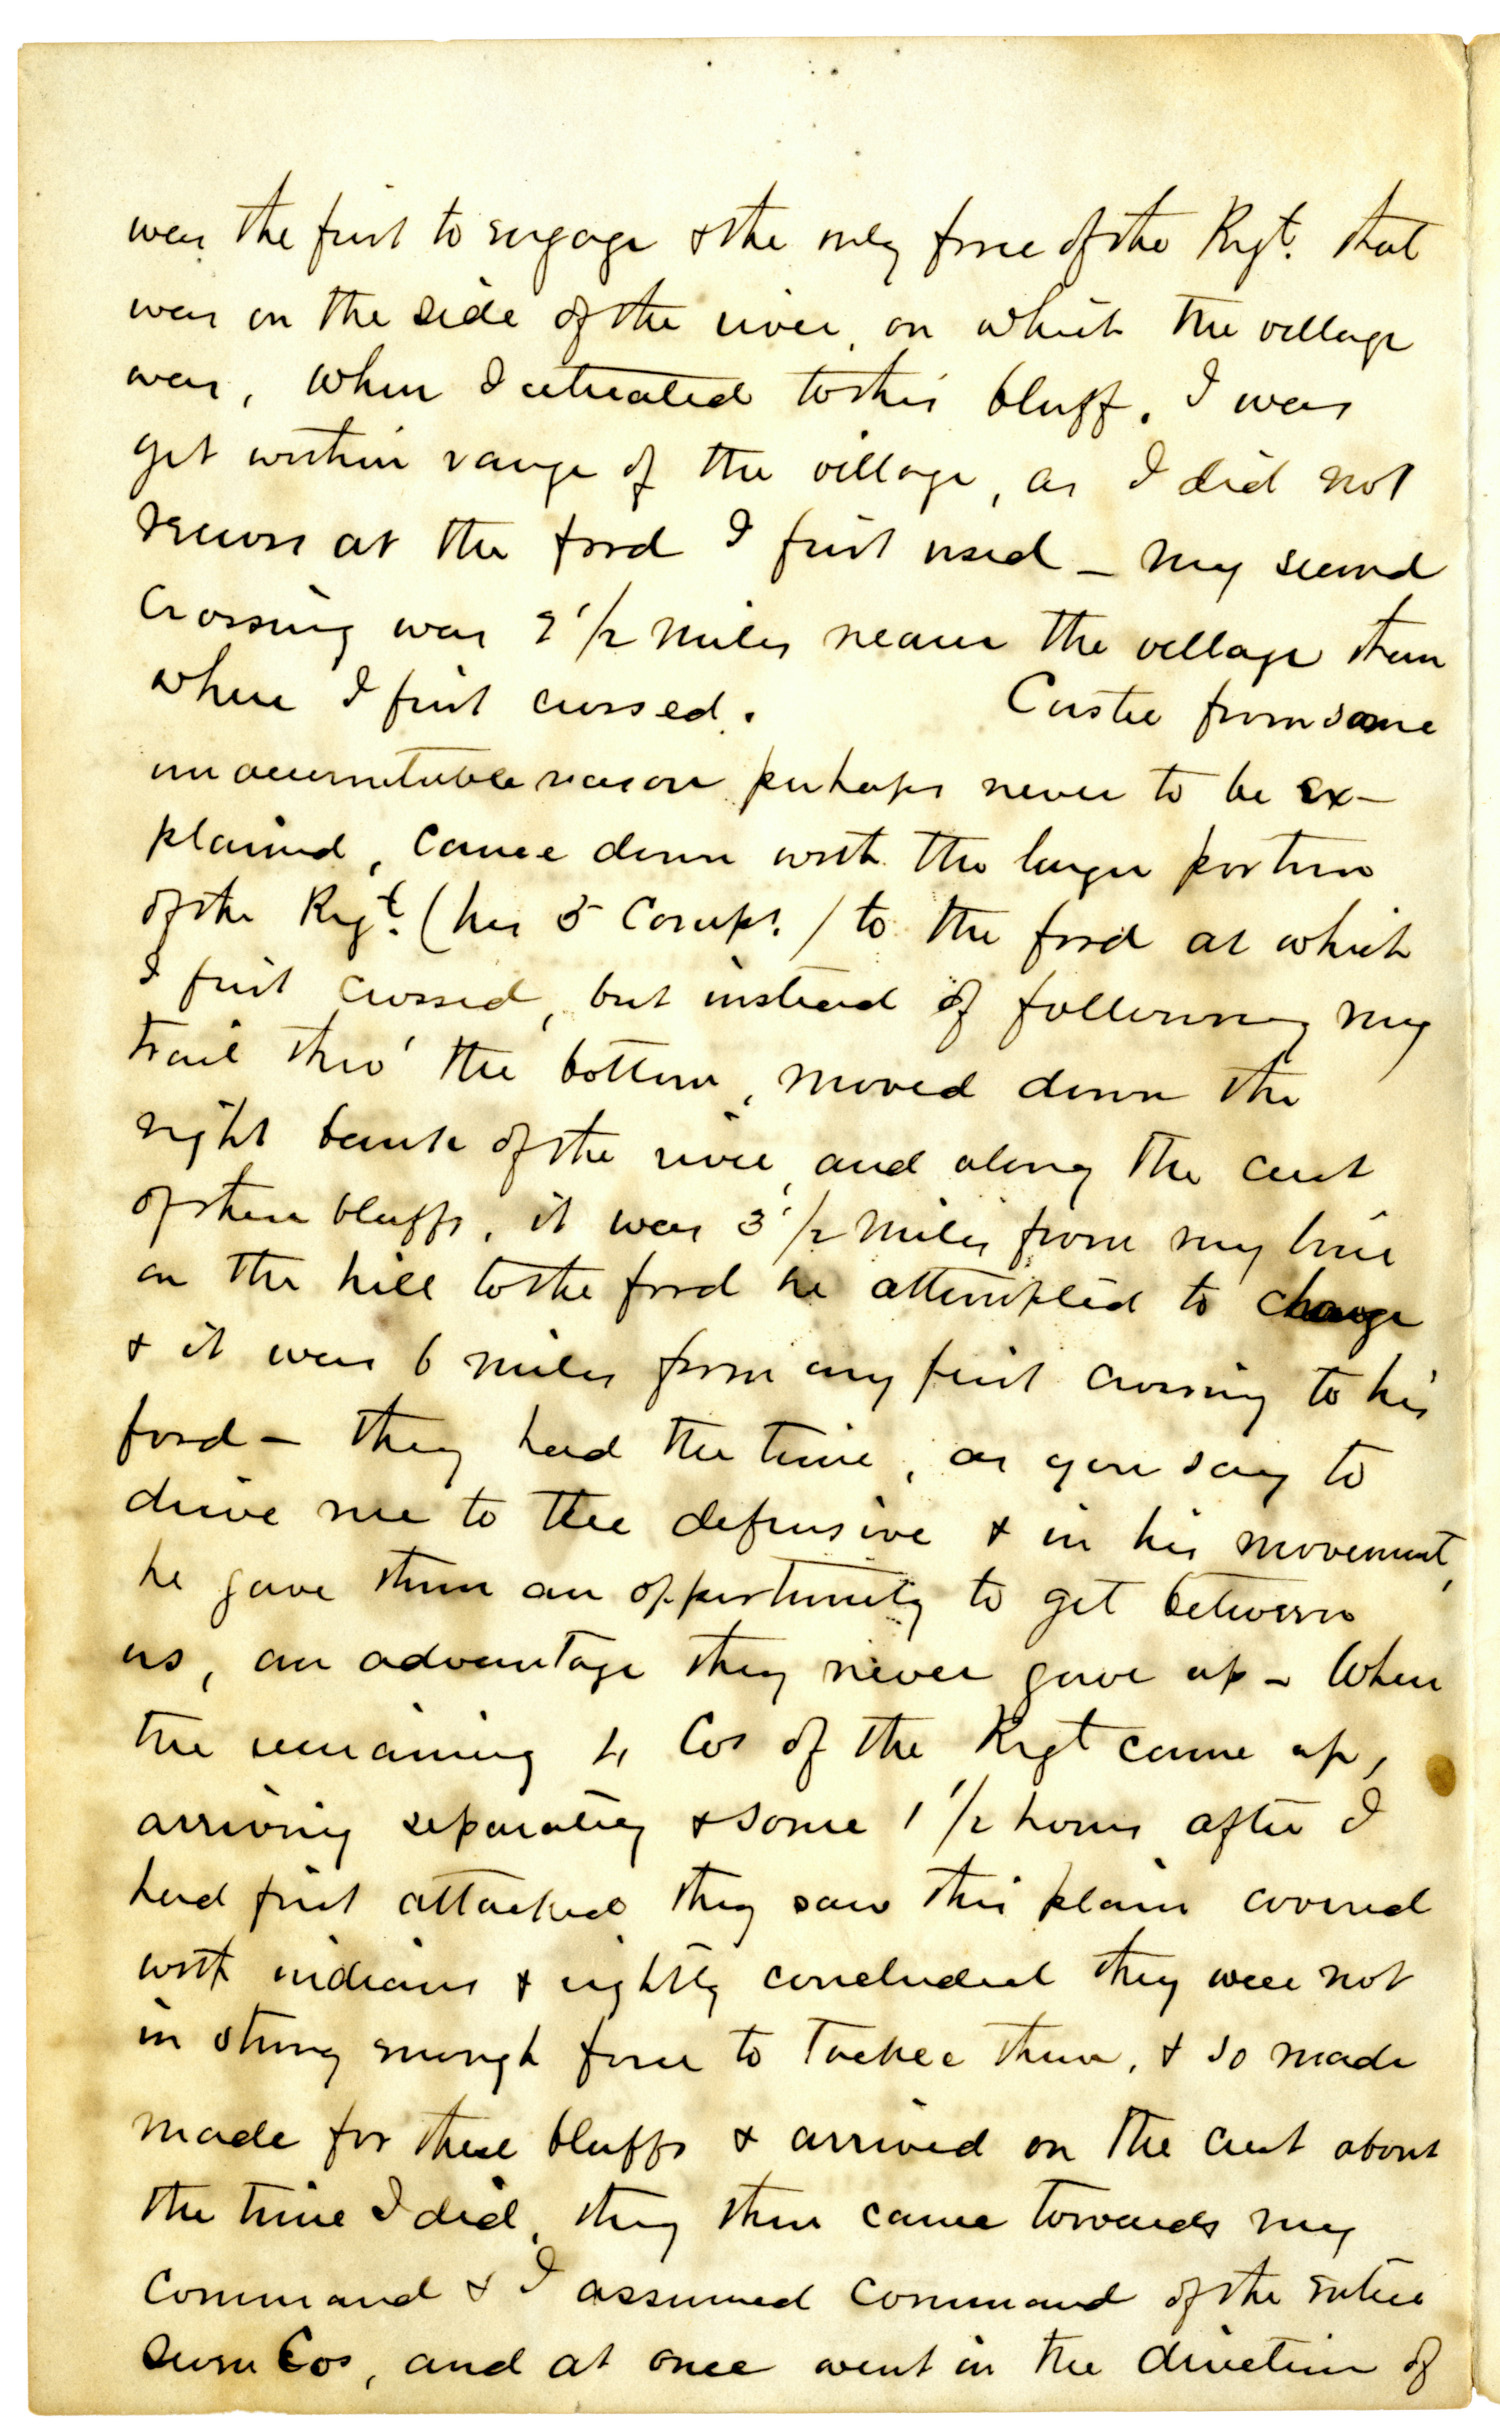 was the first to engage & the only force of the Regt. that
was on the side of the river, on which the village
was, when I retreated to this bluff. I was
yet within range of the village, as I did not
recross at the ford I first used – my second
crossing was 2 1/2 miles nearer the village than
where I first crossed. Custer from some
unaccountable reason perhaps never to be ex-
plained, came down with the larger portion
of the Regt. (his 5 Comps.) to the ford at which
I first crossed, but instead of following my
trail thro' the bottom, moved down the
right bank of the river, and along the crest
of these bluffs, it was 3 1/2 miles from my line
on the hill to the ford he attempted to charge
& it was 6 miles from my first crossing to his
ford – they had the time, as you say to
drive me to the defensive & in his movement,
he gave them an opportunity to get between
us, an advantage they never gave up – When
the remaining 4 Cos of the Regt came up,
arriving separately & some 1 1/2 hours after I
had first attacked they saw this plain covered
with indians & rightly concluded they were not
in strong enough force to tackle them, & so made
made for these bluffs & arrived on the crest about
the time I did, they then came towards my
command & I assumed command of the entire
seven Cos, and at once went in the direction of